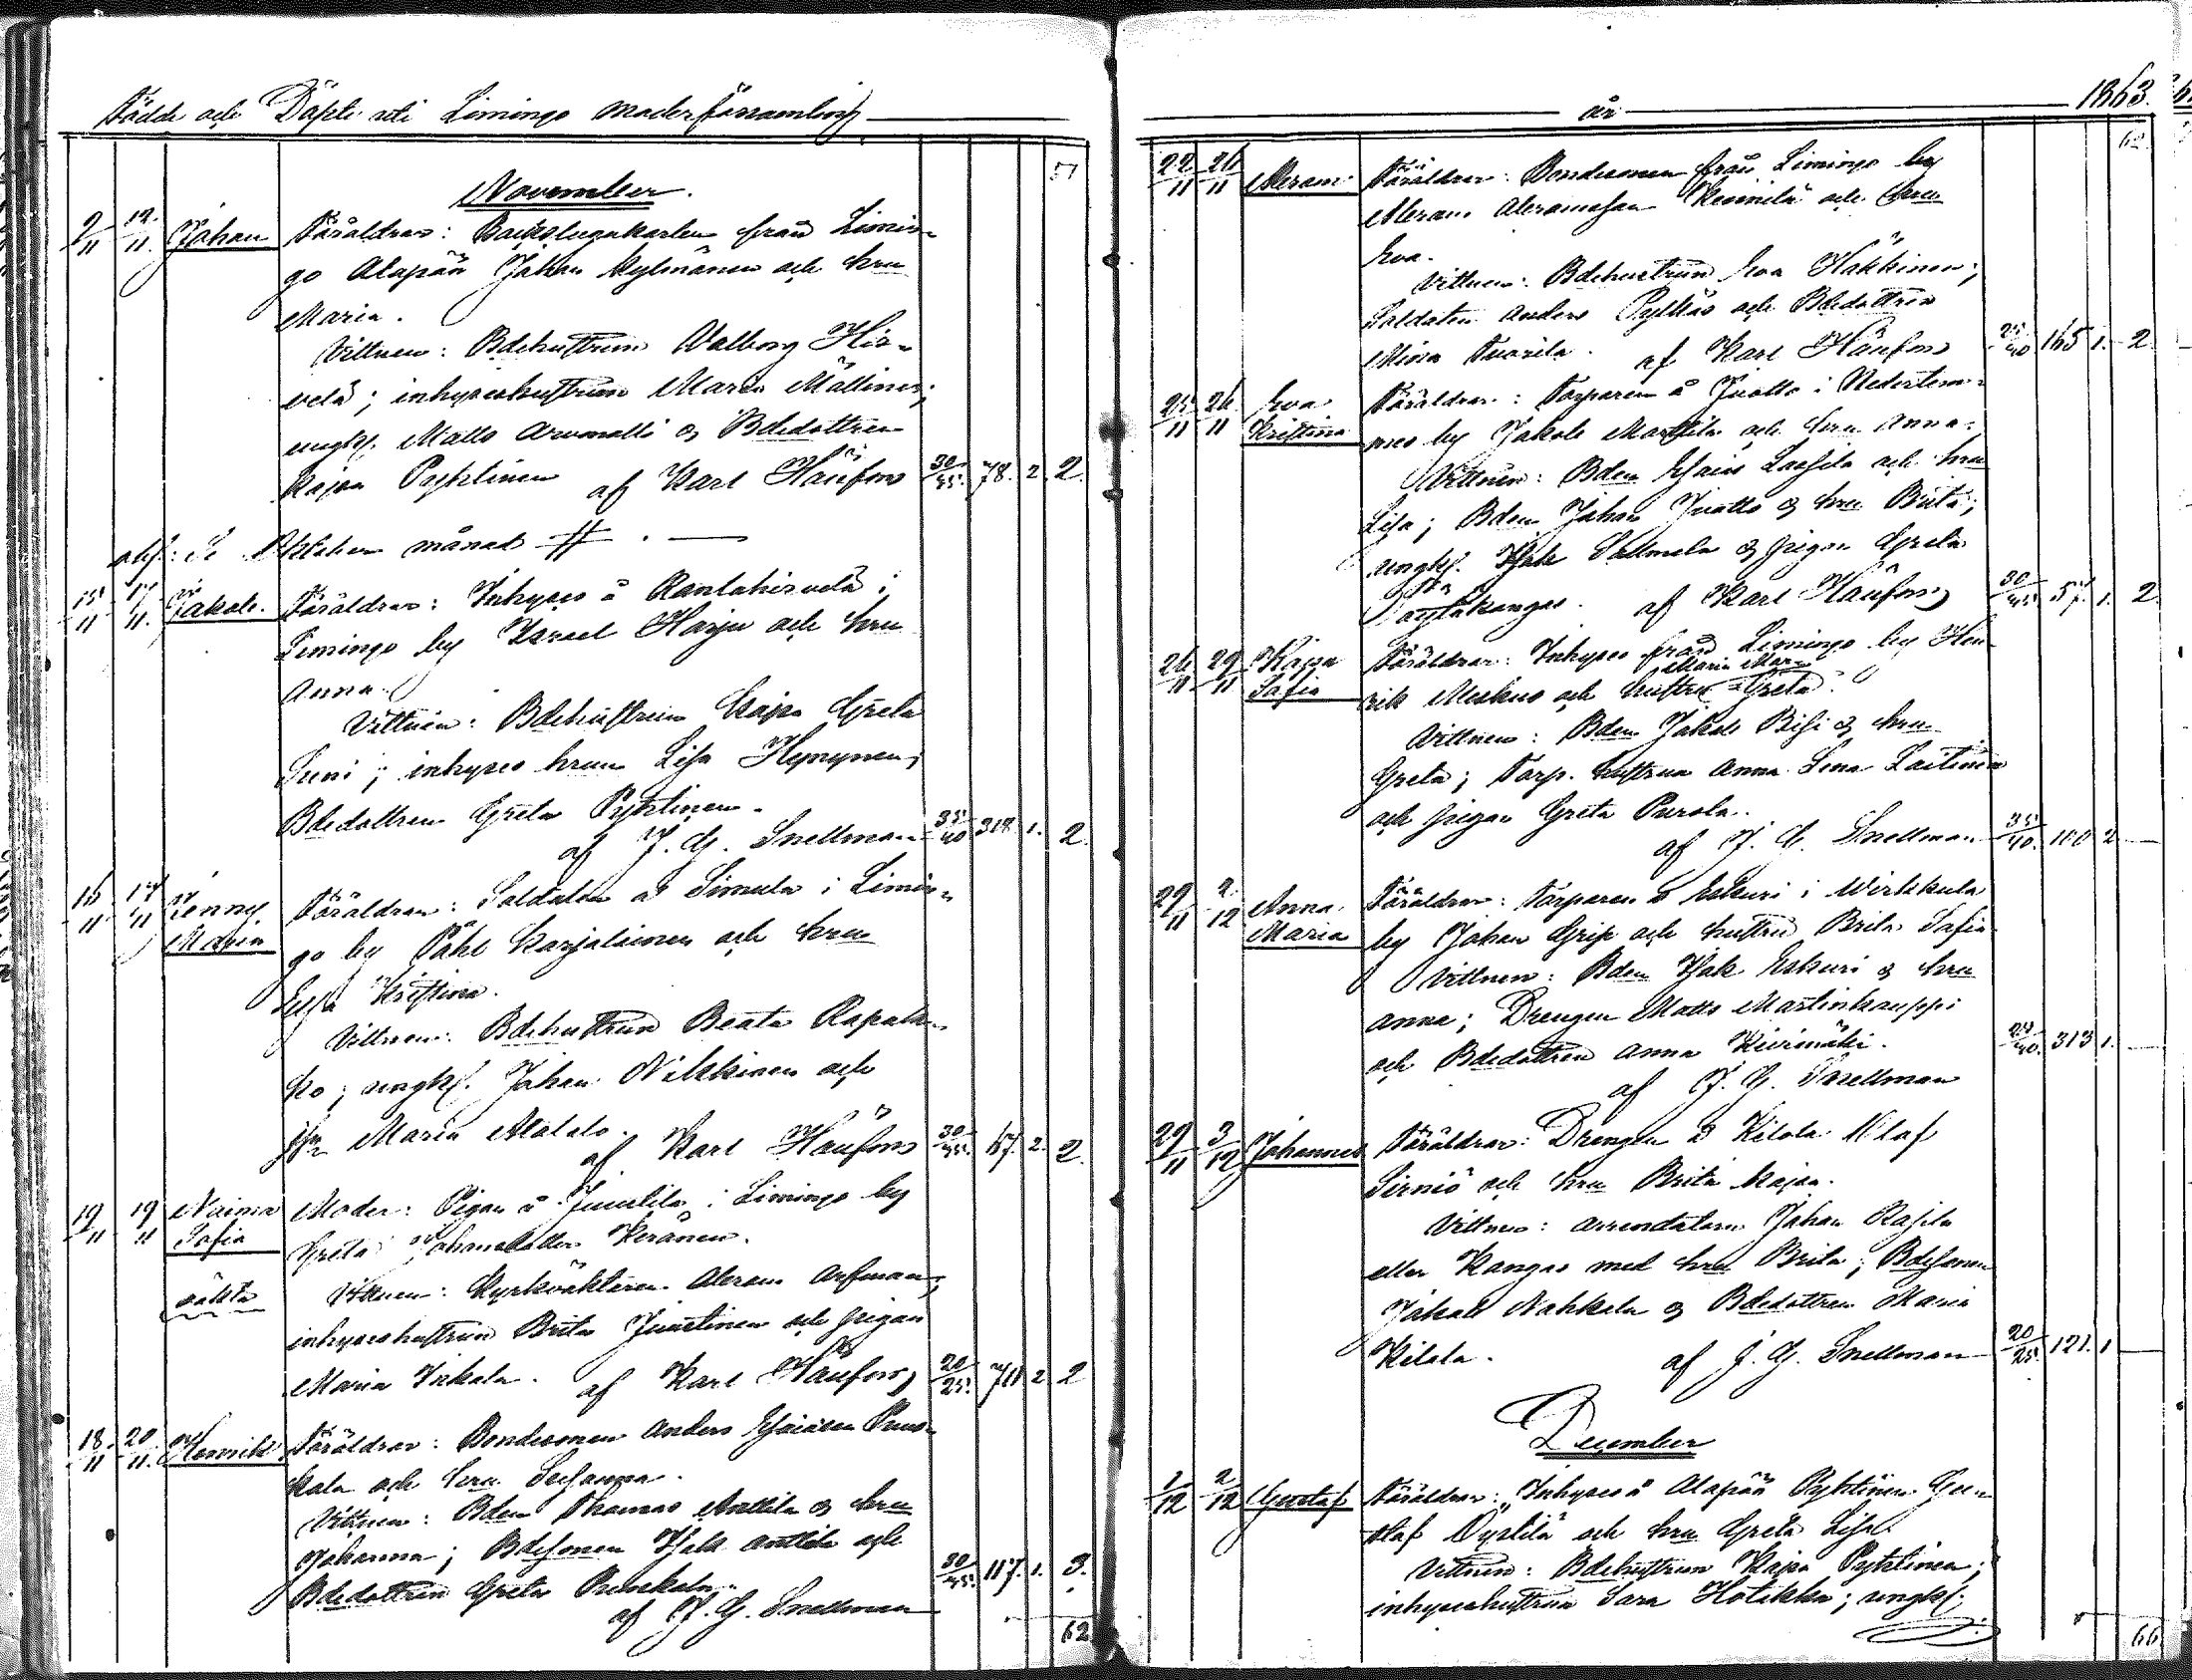 Födde och Döpte uti Limingo moderförsamling
51
November.
2/11 12/11 Johan Föräldrar: Backstugukarlen från Limin-
go Alapää Johan Kylmänen och hru
Maria.
Vittnen: Bdehustrun Walborg Hir-
velä; inhyseshustrun Maria Mällinen;
ungkl. Matts Arvonalli o Bdedottren
Kajsa Pyhtinen af Karl Häufors 30/35. 78. 2. 2.
obs: Se Oktober månad #. —
15/11 17/11 Jakob. Föräldrar: Inhyses å Rantahirvelä i
Limingo by Israel Harju och hru
Anna.
Vittnen: Bdehustrun Kajsa Greta
Suni; inhyses hrun Lisa Hyvynen;
Bdedottren Greta Pyhtinen.
af J. G. Snellman 35/40 318. 1. 2.
16/11 17/11 Jenny Maria Föräldrar: Soldaten å Simula i Limin-
go by Påhl Karjalainen och hru
Kristina.
Vittnen: Bdehustrun Beata Rapala-
ko; ungkl. Johan Nikkinen och
jfn Maria Alatalo.
af Karl Häufors 30/35. 167. 2. 2.
19/11 19/11 Naima Sofia Moder: Pigan å Juntila i Limingo by
Greta Johansdotter Keränen.
oäkta Vittnen: Kyrkväktaren Abram Arfman;
inhyseshustrun Brita Juustinen och pigan
Maria Inkala. af Karl Häufors 20/25. 711 2 2
18/11 20/11. Henrik Föräldrar: Bondesonen Anders Esaiasson Pruus-
kala och hru Susanna.
Vittnen: Bden Thomas Anttila o hru
Johanna; Bdesonen Isak Anttila och
Bdedottren Greta Pruuskala.
af J. G. Snellman 30/35. 117. 1. 3.
62
år 1863.
62
22/11 26/11 Abram Föräldrar: Bondesonen från Limingo by
Abram Abramsson Keinilä och hru
Eva.
Vittnen: Bdehustrun Eva Häkkinen;
Soldaten Anders Pylkäs och Bdedottren
Mina Tuorila. af Karl Häufors 25/40 165 1. 2
25/11 26/11 Eva Kristina Föräldrar: Torparen å Juotto i Nedertem-
mes by Jakob Marttila och hru Anna.
Vittnen: Bden Esaias Laasila och hru
Lisa; Bden Johan Juotto o hru Brita;
ungkl. Isak Sallmela o pigan Greta
kangas. af Karl Häufors 30/35. 57. 1. 2
26/11 29/11 Kajsa Sofia Föräldrar: Inhyses från Limingo by Hen-
Maria Mar-
rik Muskus och hustru Greta.
Vittnen: Bden Jakob Bisi o hru
Greta; Torp. hustrun Anna Lena Laitinen
och pigan Greta Purola.
af J. G. Snellman 35/40. 100 2
29/11 2/12 Anna Maria Föräldrar: Torparen å Eskuri i Wirkkula
by Johan Grip och hustru Brita Sofia
Vittnen: Bden Isak Eskuri o hru
Anna; Drengen Matts Martinkauppi
och Bdedottren Anna Kivimäki.
af J. G. Snellman 313 1.
29/11 3/12 Johannes Föräldrar: Drengen å Kilola Olof
Sirniö och hru Brita Kajsa.
Vittnen: Arrendatorn Johan Rasila
eller Kangas med hru Brita; Bdesonen
Jakob Nahkala o Bdedottren Maria
Kilola. af J. G. Snellman 20/25. 121. 1
December
1/12 2/12 Gustaf Föräldrar: Inhyses å Alapää Pyhtinen Gu-
staf Oystilä och hru Greta Lisa.
Vittnen: Bdehustrun Kajsa Pyhtinen;
inhyseshustrun Sara Hotikka; ungkl.
66